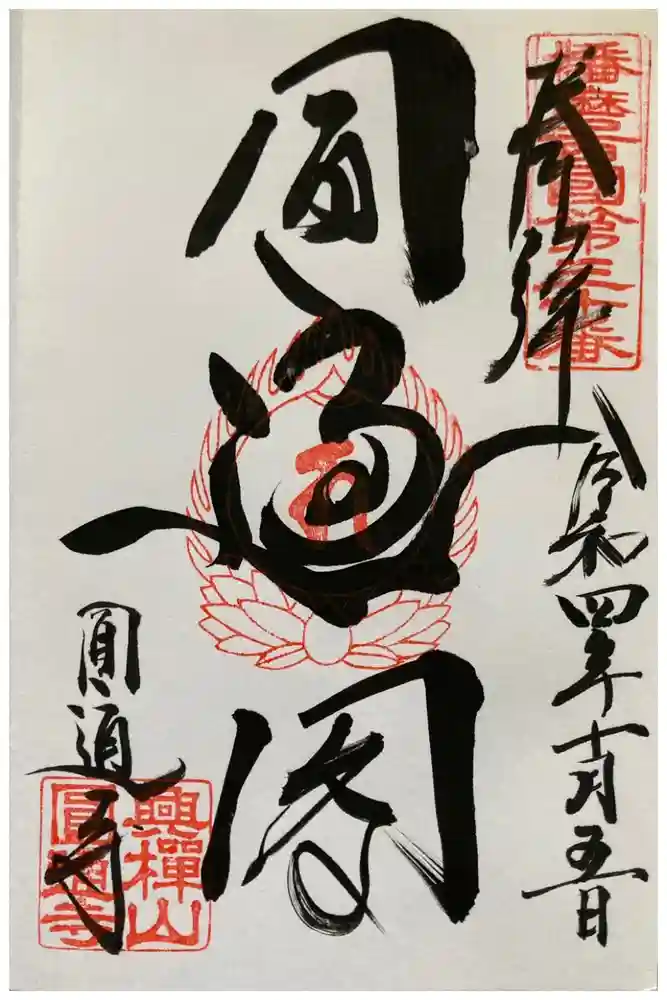 播磨西國第三十番
奉拝
令和四年十一月五日
圓通閣
圓通寺
興禅山
圓通寺